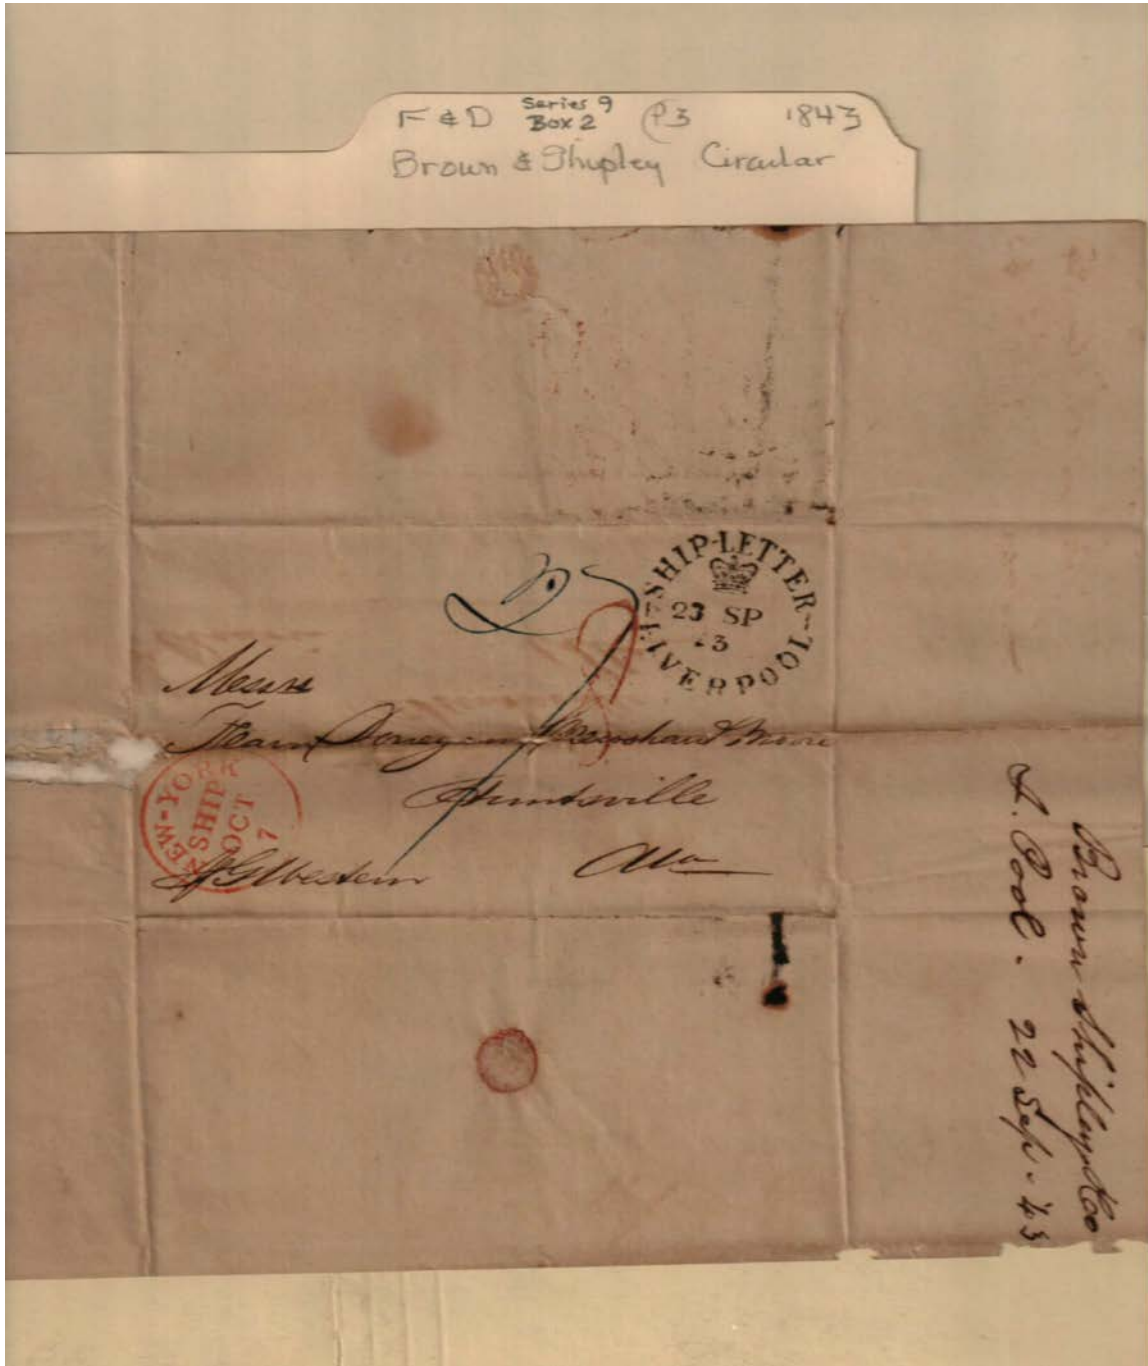 F & D Series 9 Box 2 P3 1843
Brown & Shipley Circular
SHIP-LETTER LIVERPOOL
23 SP
43
Messrs
Fearn Donegan
Huntsville
Ala
NEW-YORK
SHIP
OCT
7
Brown Shipley & Co
L. Pool. 22 Sep. 43